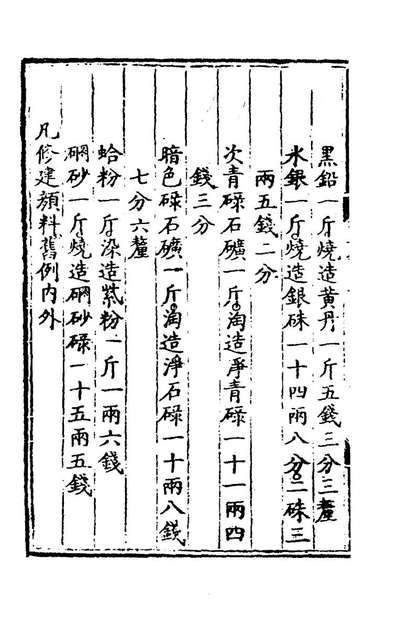 黑鉛一斤燒造黃丹一斤五錢三分三釐
水銀一斤燒造銀硃一十四兩八分二硃三
兩五錢二分
次青碌石礦一斤淘造淨青碌一十一兩四
錢三分
暗色碌石礦一斤淘造淨石碌一十兩八錢
七分六釐
蛤粉一斤染造紫粉一斤一兩六錢
硇砂一斤燒造硇砂碌一十五兩五錢
凡修建顏料舊例內外